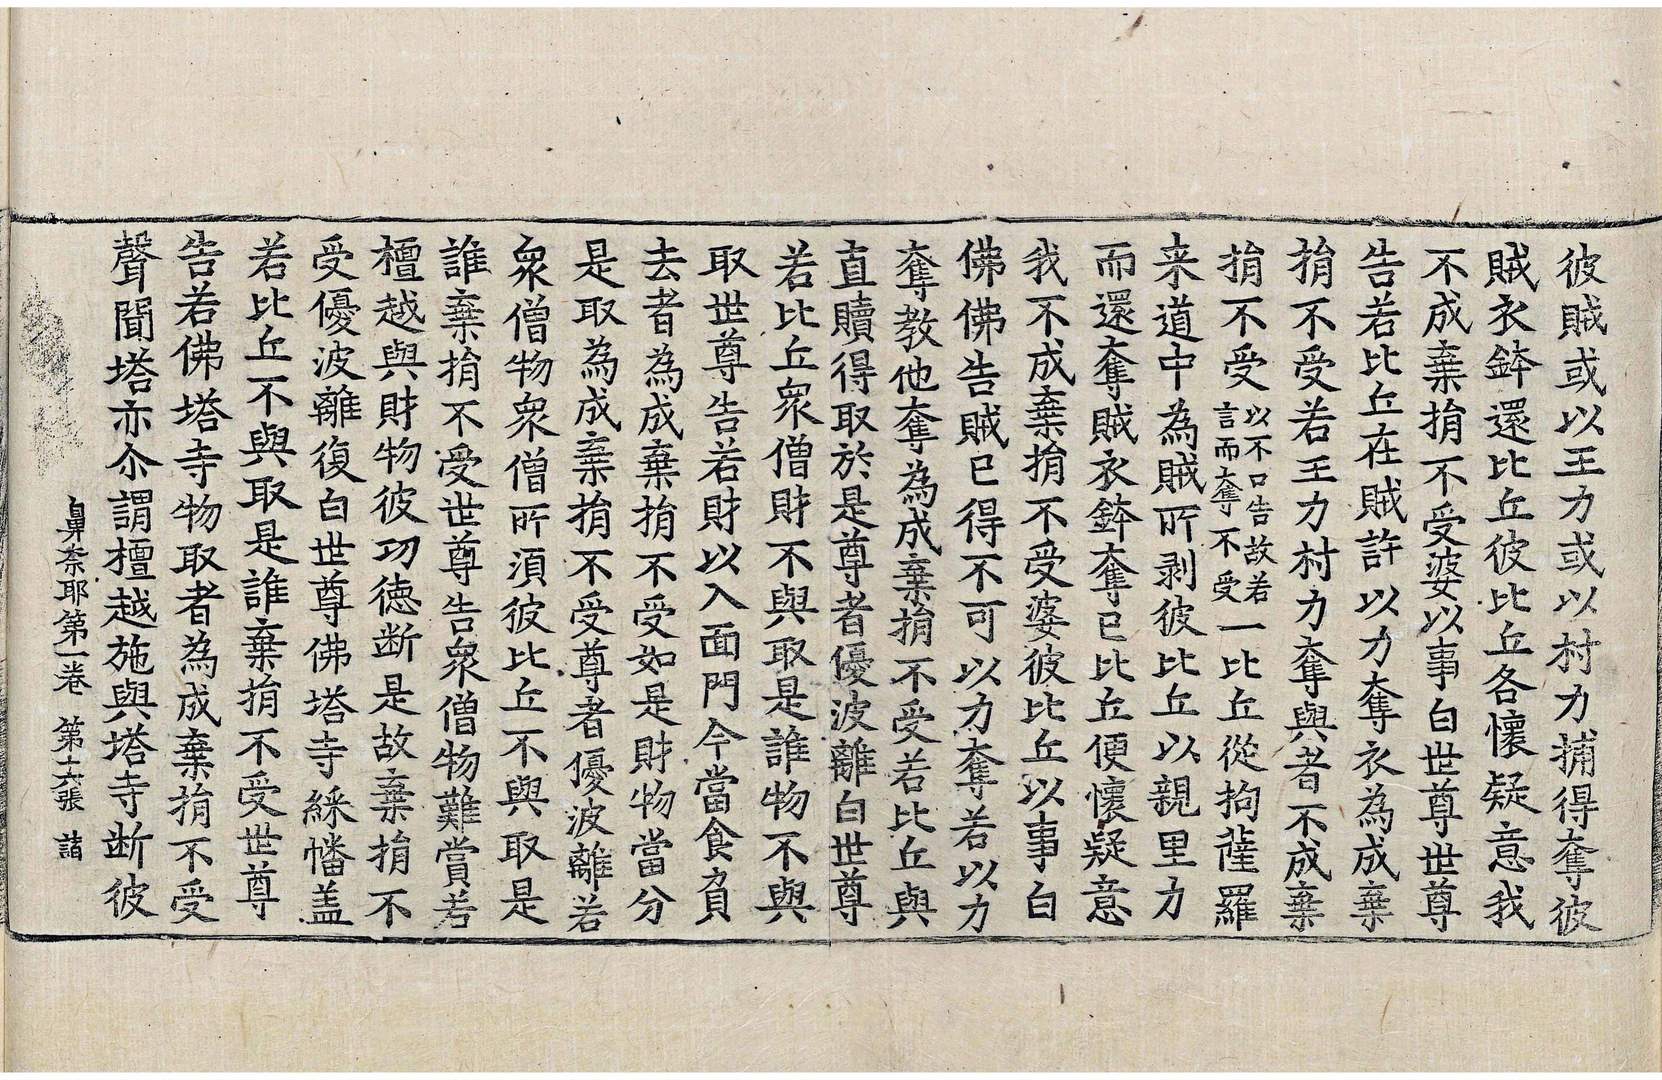 彼賊或以王力或以村力捕得奪彼
賊衣鉢還比丘彼比丘各懷疑意我
不成棄捐不受婆以事白世尊世尊
告若比丘在賊許以力奪衣為成棄
捐不受若王力村力奪與者不成棄
捐不受以不口告故若言而奪不受一比丘從拘薩羅
来道中為賊所剥彼比丘以親里力
而還奪賊衣鉢奪已比丘便懷疑意
我不成棄捐不受婆彼比丘以事白
佛佛告賊已得不可以力奪若以力
奪教他奪為成棄捐不受若比丘與
直贖得取於是尊者優波離白世尊
若比丘衆僧財不與取是誰物不與
取世尊告若財以入面門今當食負
去者為成棄捐不受如是財物當分
是取為成棄捐不受尊者優波離若
衆僧物衆僧所湏彼比丘不與取是
誰棄捐不受世尊告衆僧物難賞若
檀越與財物彼功德断是故棄捐不
受優波離復白世尊佛塔寺綵幡盖
若比丘不與取是誰棄捐不受世尊
告若佛塔寺物取者為成棄捐不受
聲聞塔亦尒謂檀越施與塔寺断彼
鼻奈耶第一卷 第六張 諸